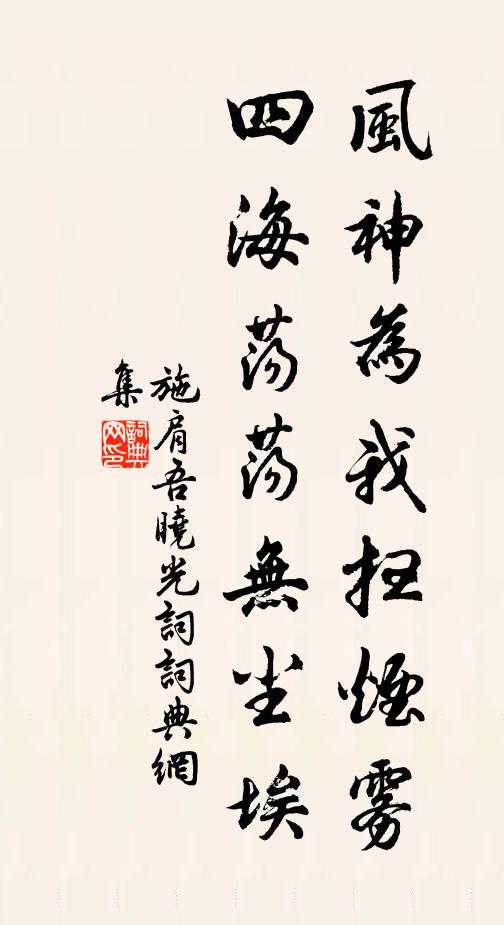 風神為我扫煙雾
四海荡荡無尘埃
施肩吾曉光詞詞典網
集
詞典
网印